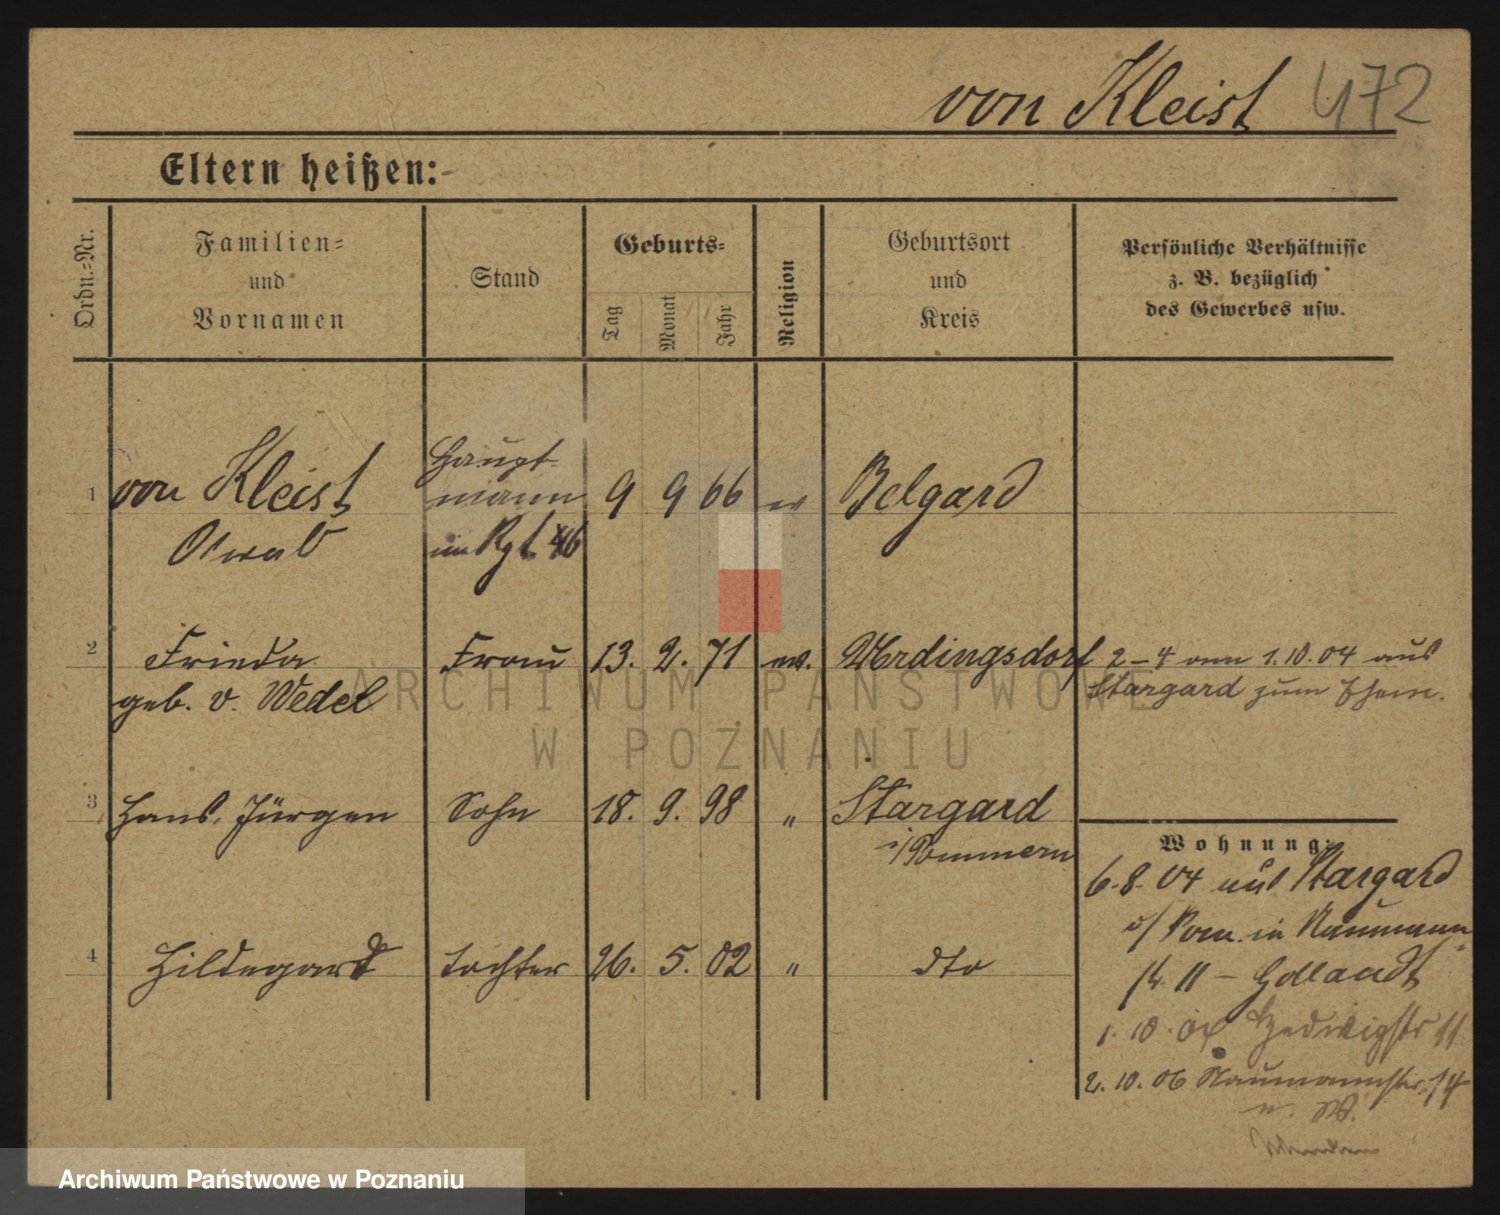 von Kleist 472
Eltern heißen:
Ordn.-Nr.
Familien-
und
Vornamen
Stand
Geburts-
Tag
Monat
Jahr
Religion
Geburtsort
und
Kreis
Persönliche Verhältnisse
z. B. bezüglich
des Gewerbes usw.
1 von Kleist Haupt- 9 9 66 ev Belgard
mann
im Rgt 46
2 Frieda Frau 13. 2. 71 ev. 2–4 am 1.10.04 aus
geb. v. Wedel Stargard zum Ehem.
3 Hans, Jürgen Sohn 18. 9. 98 " Stargard
i/Pommern
4 Hildegard Tochter 26. 5. 02 " dto
Wohnung:
6.8.04 aus Stargard
i/ Pom. in Naumann
11 – Gollandt
1. 10. Hedwigstr 11
2. 10. 06 Naumannstr. 14
ARCHIWUM PAŃSTWOWE
W POZNANIU
Archiwum Państwowe w Poznaniu